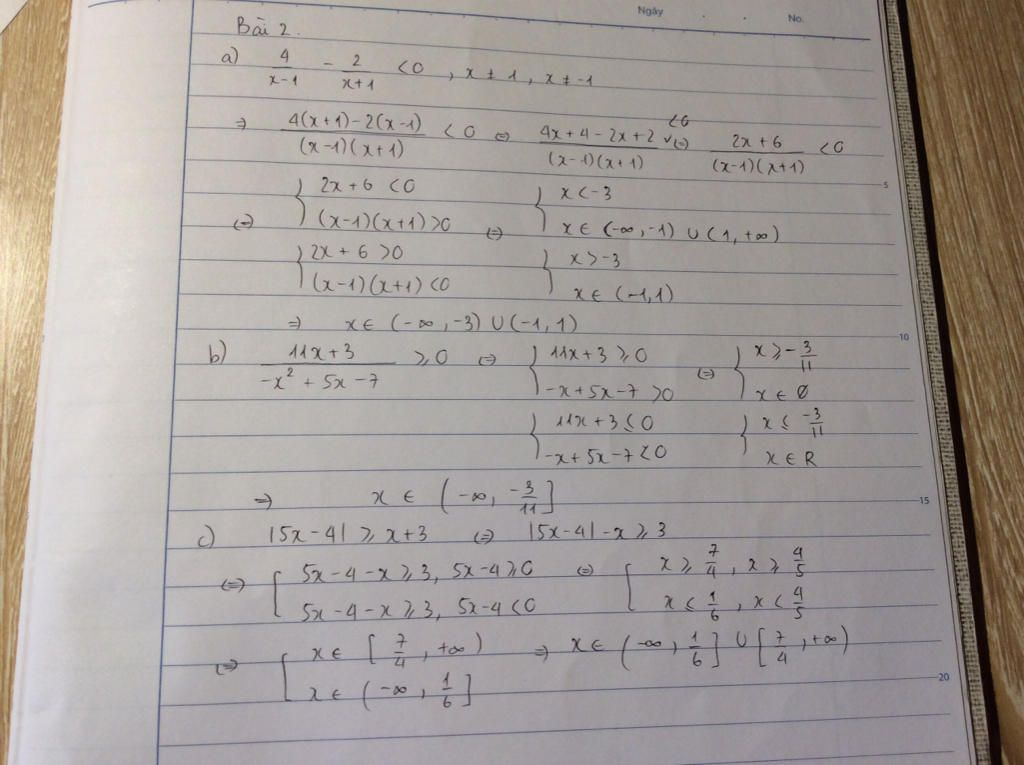 Ngày . . No.
Bài 2.
a) 4/(x-1) - 2/(x+1) <0 , x ≠ 1 , x ≠ -1
⇒ (4(x+1)-2(x-1))/((x-1)(x+1)) < 0 ⇔ (4x+4-2x+2)/((x-1)(x+1)) <0 ⇔ (2x+6)/((x-1)(x+1)) <0
5
{ 2x+6 <0 { x<-3
⇔ (x-1)(x+1)>0 ⇔ x ∈ (-∞,-1) ∪ (1,+∞)
{ 2x+6 >0 { x>-3
(x-1)(x+1)<0 x ∈ (-1,1)
⇒ x ∈ (-∞,-3) ∪ (-1,1)
10
b) (11x+3)/(-x²+5x-7) ⩾0 ⇔ { 11x+3 ⩾0 ⇔ { x⩾-3/11
-x+5x-7 >0 x ∈ ∅
{ 11x+3 ≤0 { x ≤ -3/11
-x+5x-7<0 x ∈ R
⇒ x ∈ (-∞, -3/11]
15
c) |5x-4| ⩾ x+3 ⇔ |5x-4|-x ⩾ 3
⇔ [ 5x-4-x ⩾3, 5x-4⩾0 ⇔ [ x ⩾ 7/4 , x ⩾ 4/5
5x-4-x ⩾3, 5x-4<0 x ≤ 1/6 , x < 4/5
⇔ [ x ∈ [7/4, +∞) ⇒ x ∈ (-∞, 1/6] ∪ [7/4, +∞)
x ∈ (-∞, 1/6]
20